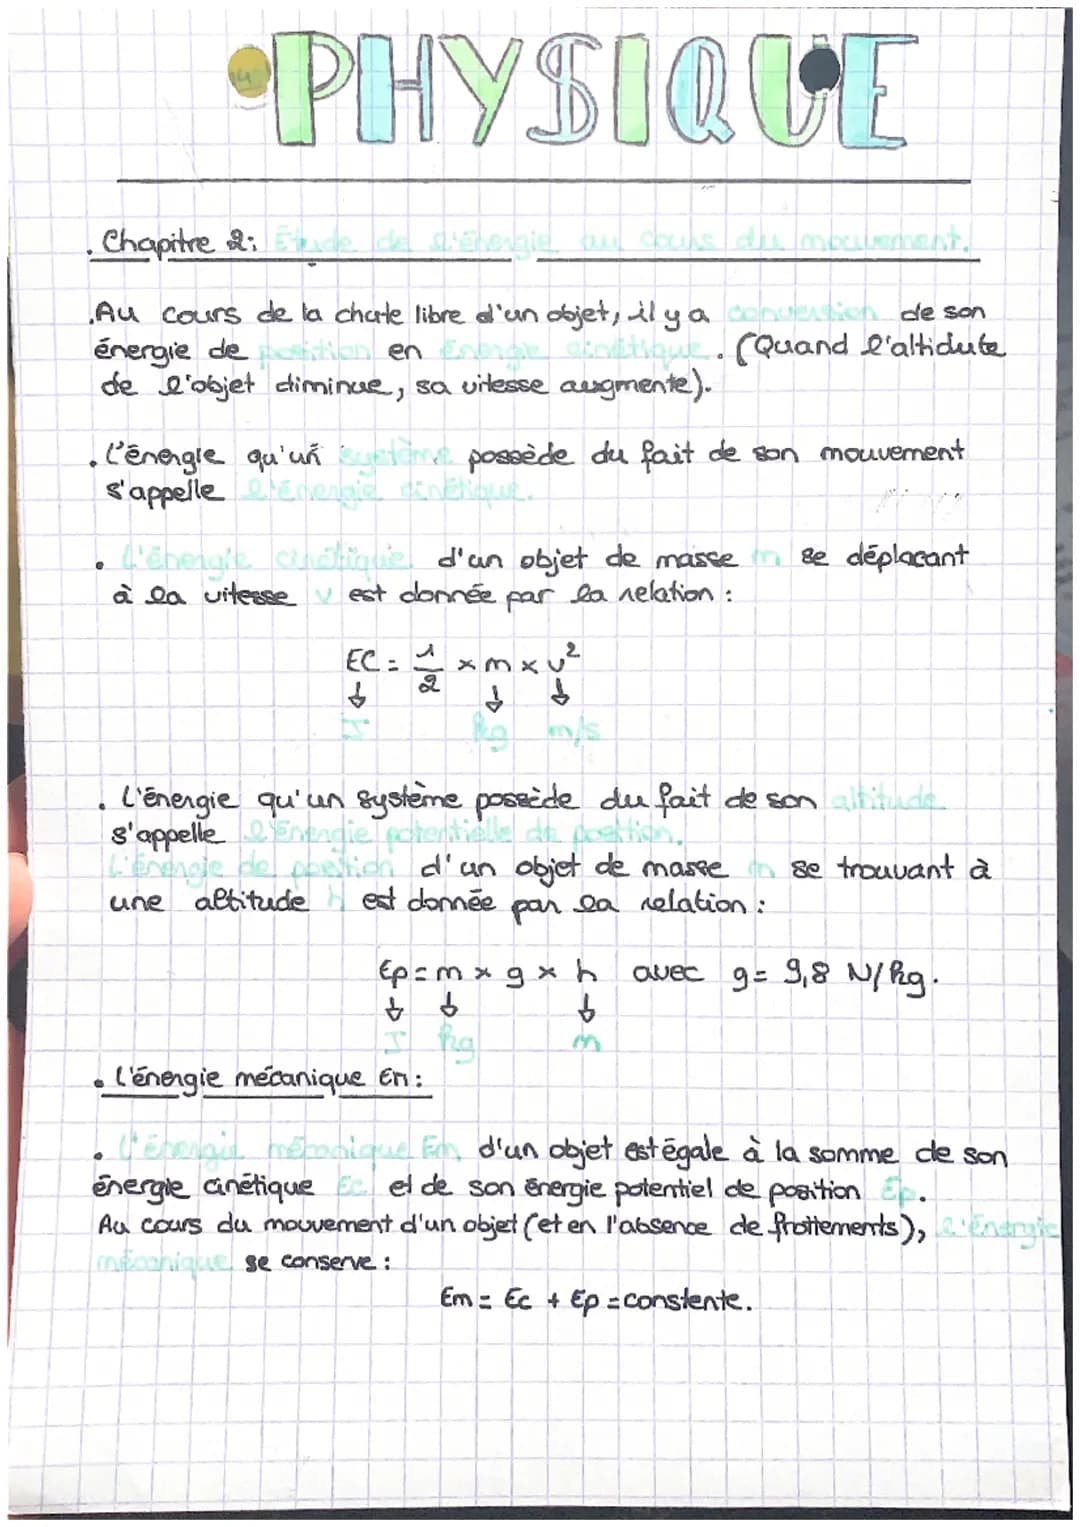 PHYSIQUE
. Chapitre 2: Étude de l'énergie au cours du mouvement.
.Au cours de la chute libre d'un objet, il y a conversion de son
énergie de position en énergie cinétique. (Quand l'altidute
de l'objet diminue, sa vitesse augmente).
. L'énergie qu'un système possède du fait de son mouvement
s'appelle l'énergie cinétique.
. L'énergie cinétique d'un objet de masse m se déplacant
à la vitesse v est donnée par la relation :
EC = 1/2 × m × v²
↓ ↓ ↓
J kg m/s
. L'énergie qu'un système possède du fait de son altitude
s'appelle l'énergie potentielle de position.
L'énergie de position d'un objet de masse m se trouvant à
une altitude h est donnée par la relation :
Ep = m × g × h avec g = 9,8 N/kg.
↓ ↓ ↓
J kg m
. L'énergie mécanique Em :
. L'énergie mécanique Em d'un objet est égale à la somme de son
énergie cinétique Ec et de son énergie potentiel de position Ep.
Au cours du mouvement d'un objet (et en l'absence de frottements), l'énergie
mécanique se conserve :
Em = Ec + Ep = constente.